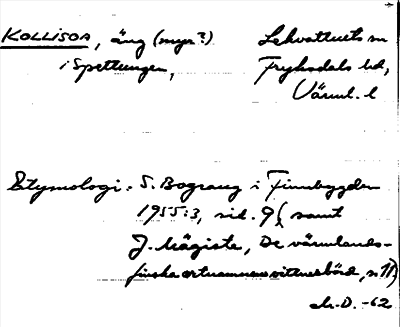 KOLLISOA, äng (myr?) Lekvattnets sn
i Spettungen, Fryksdals hd,
Värml. l
Etymologi: S. Bograng i Finnbygden
1955:3, sid. 9 samt
J. Mägiste, De värmlands-
finska ortnamnens vittnesbörd, s. 11)
-62